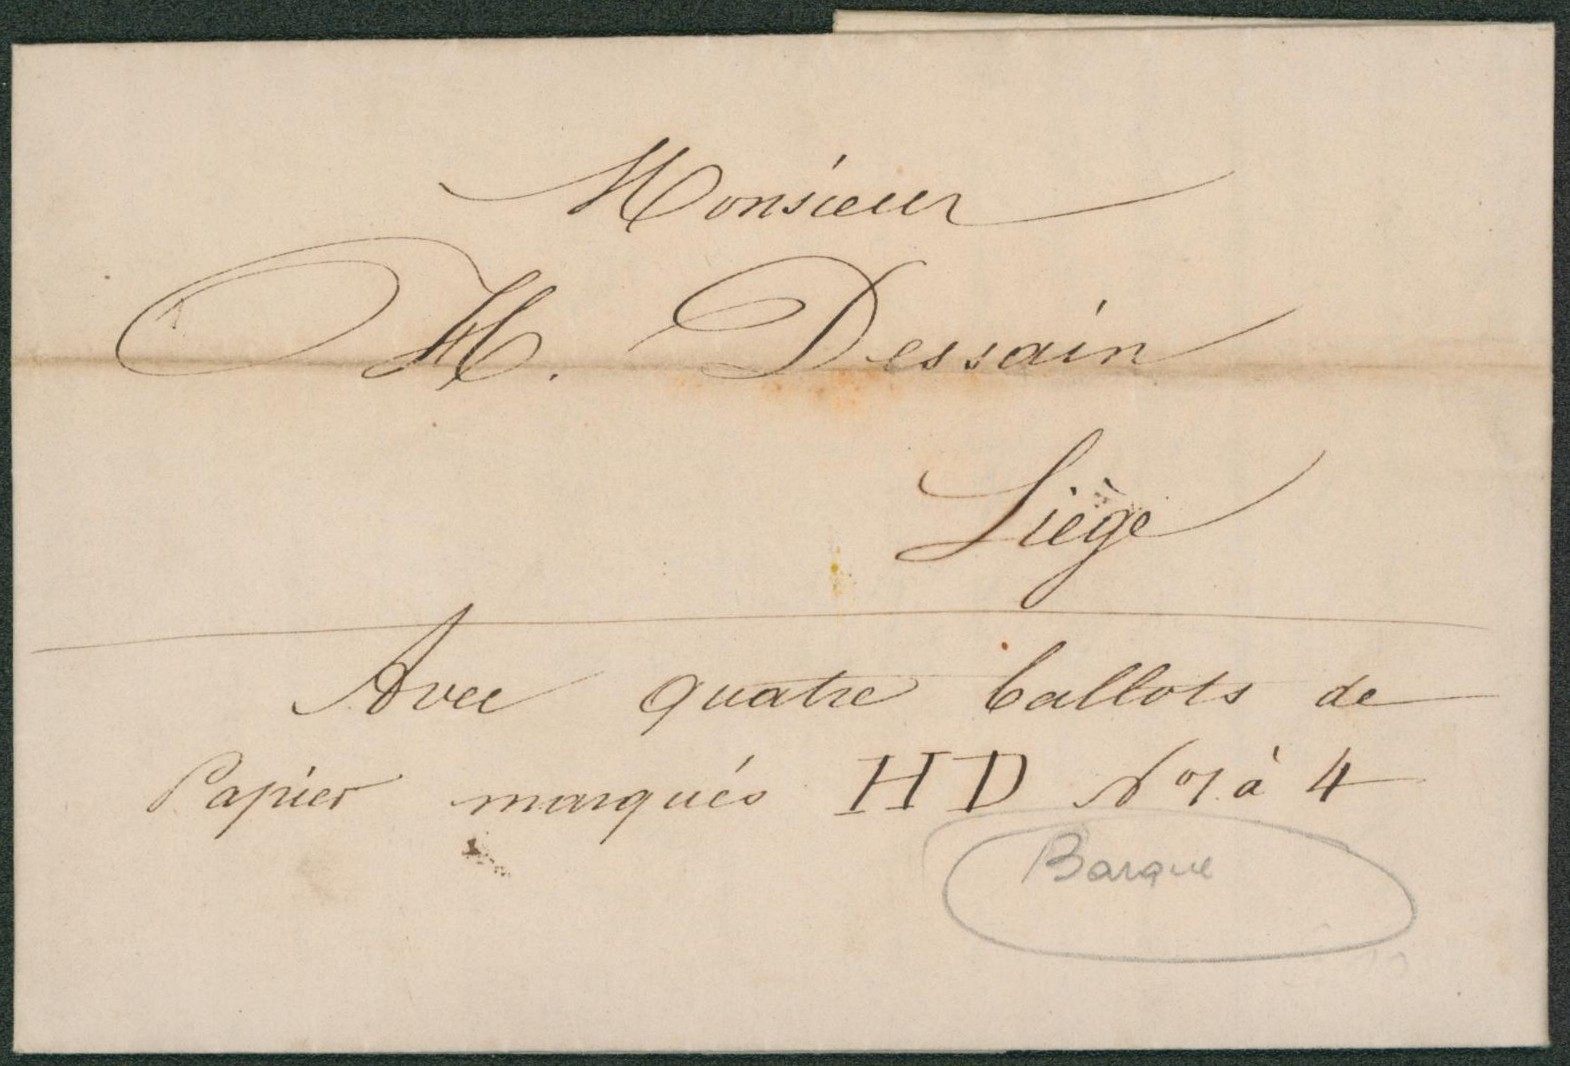 Monsieur
H. Dessain
Liège
Avec quatre ballots de
Papier marqués HD Nos 1 à 4
Barque